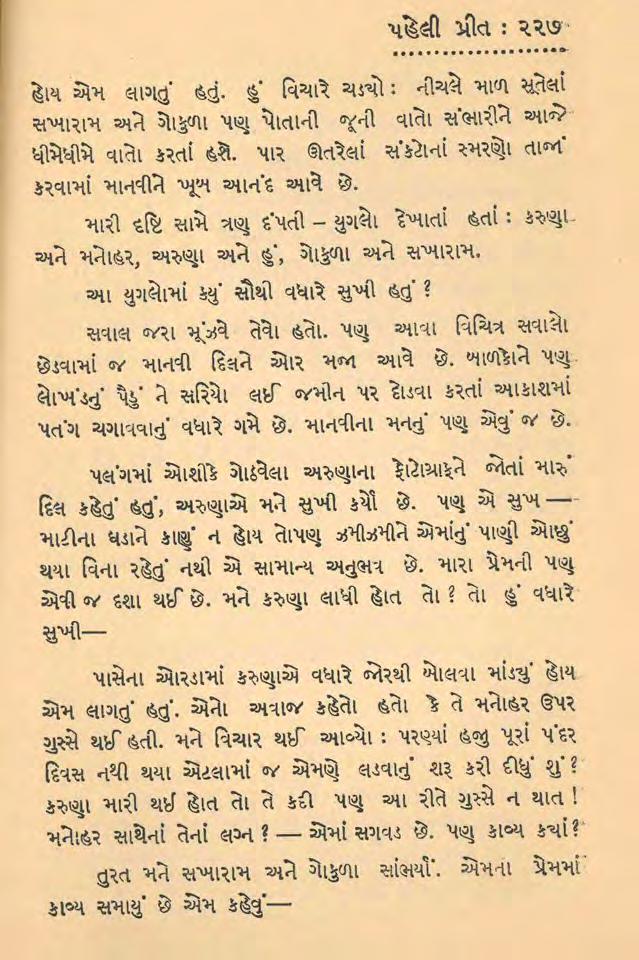 પહેલી પ્રીત : ૨૨૭
હોય એમ લાગતું હતું. હું વિચારે ચડ્યો : નીચલે માળ સૂતેલાં
સખારામ અને ગોકુળા પણ પોતાની જૂની વાતો સંભારીને આજે
ધીમેધીમે વાતો કરતાં હશે. પાર ઊતરેલાં સંકટોનાં સ્મરણો તાજાં
કરવામાં માનવીને ખૂબ આનંદ આવે છે.
મારી દૃષ્ટિ સામે ત્રણ દંપતી – યુગલો દેખાતાં હતાં : કરુણા
અને મનોહર, અરુણા અને હું, ગોકુળા અને સખારામ.
આ યુગલોમાં ક્યું સૌથી વધારે સુખી હતું ?
સવાલ જરા મૂંઝવે તેવો હતો. પણ આવા વિચિત્ર સવાલો
છેડવામાં જ માનવી દિલને ઓર મજા આવે છે. બાળકોને પણ
લોખંડનું પૈડું ને સરિયો લઈ જમીન પર દોડવા કરતાં આકાશમાં
પતંગ ચગાવવાનું વધારે ગમે છે. માનવીના મનનું પણ એવું જ છે.
પલંગમાં ઓશીકે ગોઠવેલા અરુણાના ફોટોગ્રાફને જોતાં મારું
દિલ કહેતું હતું, અરુણાએ મને સુખી કર્યો છે. પણ એ સુખ —
માટીના ઘડાને કાણું ન હોય તોપણ ઝમીઝમીને એમાંનું પાણી ઓછું
થયા વિના રહેતું નથી એ સામાન્ય અનુભવ છે. મારા પ્રેમની પણ
એવી જ દશા થઈ છે. મને કરુણા લાધી હોત તો ? તો હું વધારે
સુખી—
પાસેના ઓરડામાં કરુણાએ વધારે જોરથી બોલવા માંડ્યું હોય
એમ લાગતું હતું. એનો અવાજ કહેતો હતો કે તે મનોહર ઉપર
ગુસ્સે થઈ હતી. મને વિચાર થઈ આવ્યો : પરણ્યાં હજી પૂરાં પંદર
દિવસ નથી થયા એટલામાં જ એમણે લડવાનું શરૂ કરી દીધું શું ?
કરુણા મારી થઈ હોત તો તે કદી પણ આ રીતે ગુસ્સે ન થાત !
મનોહર સાથેનાં તેનાં લગ્ન ? — એમાં સગવડ છે. પણ કાવ્ય ક્યાં ?
તુરત મને સખારામ અને ગોકુળા સાંભર્યાં. એમના પ્રેમમાં
કાવ્ય સમાયું છે એમ કહેવું—